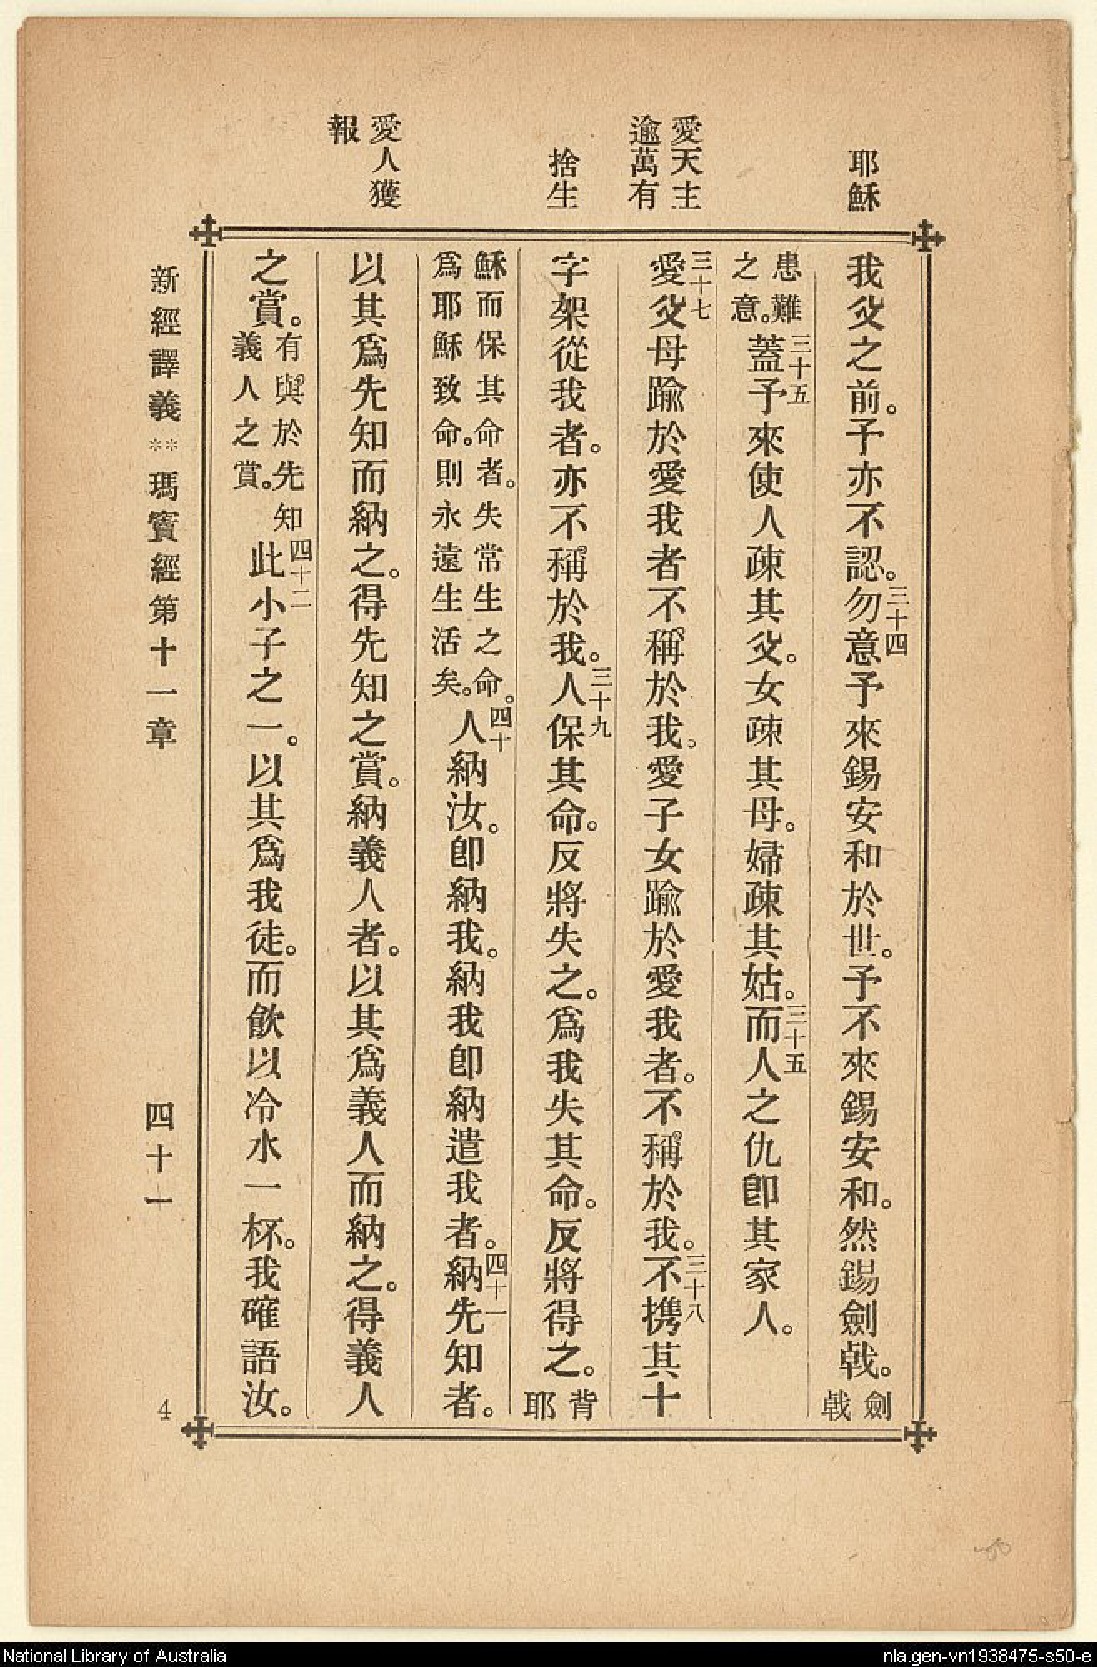 耶穌
愛天主
逾萬有
捨生
愛人獲
報
我父之前。予亦不認。三十四勿意予來錫安和於世。予不來錫安和。然錫劍戟。劍戟
患難之意。三十五蓋予來使人疎其父。女疎其母。婦疎其姑。三十五而人之仇卽其家人。
三十七愛父母踰於愛我者不稱於我。愛子女踰於愛我者。不稱於我。三十八不携其十
字架從我者。亦不稱於我。三十九人保其命。反將失之。爲我失其命。反將得之。背耶
穌而保其命者。失常生之命。爲耶穌致命。則永遠生活矣。四十人納汝。卽納我。納我卽納遣我者。四十一納先知者。
以其爲先知而納之。得先知之賞。納義人者。以其爲義人而納之。得義人
之賞。有與於先知義人之賞。四十二此小子之一。以其爲我徒。而飮以冷水一杯。我確語汝。
新經譯義**瑪竇經第十一章 四十一
4
National Library of Australia
nla.gen-vn1938475-s50-e